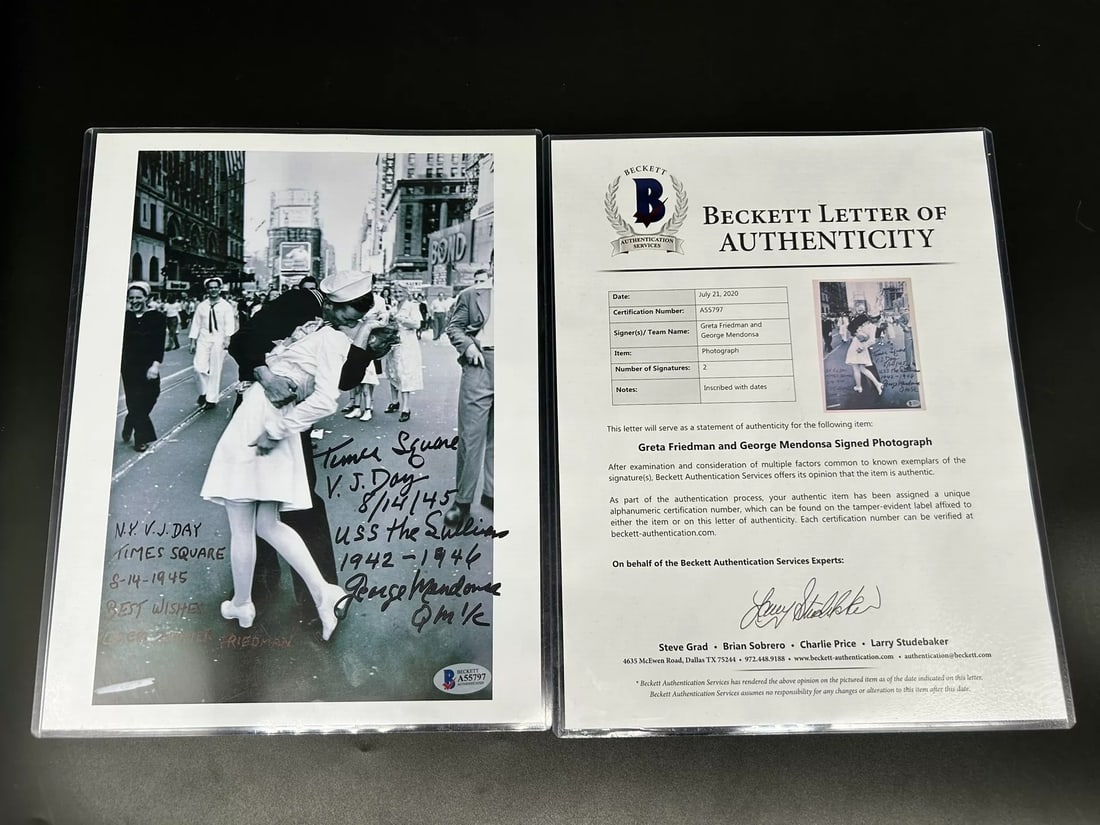 BOND
Times Square
V.J. Day
8/14/45
USS the Sullivans
1942-1946
George Mendonsa
QM1/c
N.Y. V.J. DAY
TIMES SQUARE
8-14-1945
BEST WISHES
FRIEDMAN
BECKETT
A55797
BECKETT
B
AUTHENTICATION
SERVICES
BECKETT LETTER OF
AUTHENTICITY
Date: July 21, 2020
Certification Number: A55797
Signer(s)/ Team Name: Greta Friedman and
George Mendonsa
Item: Photograph
Number of Signatures: 2
Notes: Inscribed with dates
This letter will serve as a statement of authenticity for the following item:
Greta Friedman and George Mendonsa Signed Photograph
After examination and consideration of multiple factors common to known exemplars of the
signature(s), Beckett Authentication Services offers its opinion that the item is authentic.
As part of the authentication process, your authentic item has been assigned a unique
alphanumeric certification number, which can be found on the tamper-evident label affixed to
either the item or on this letter of authenticity. Each certification number can be verified at
beckett-authentication.com.
On behalf of the Beckett Authentication Services Experts:
Larry Studebaker
Steve Grad • Brian Sobrero • Charlie Price • Larry Studebaker
4635 McEwen Road, Dallas TX 75244 • 972.448.9188 • www.beckett-authentication.com • authentication@beckett.com
* Beckett Authentication Services has rendered the above opinion on the pictured item as of the date indicated on this letter.
Beckett Authentication Services assumes no responsibility for any changes or alteration to this item after this date.